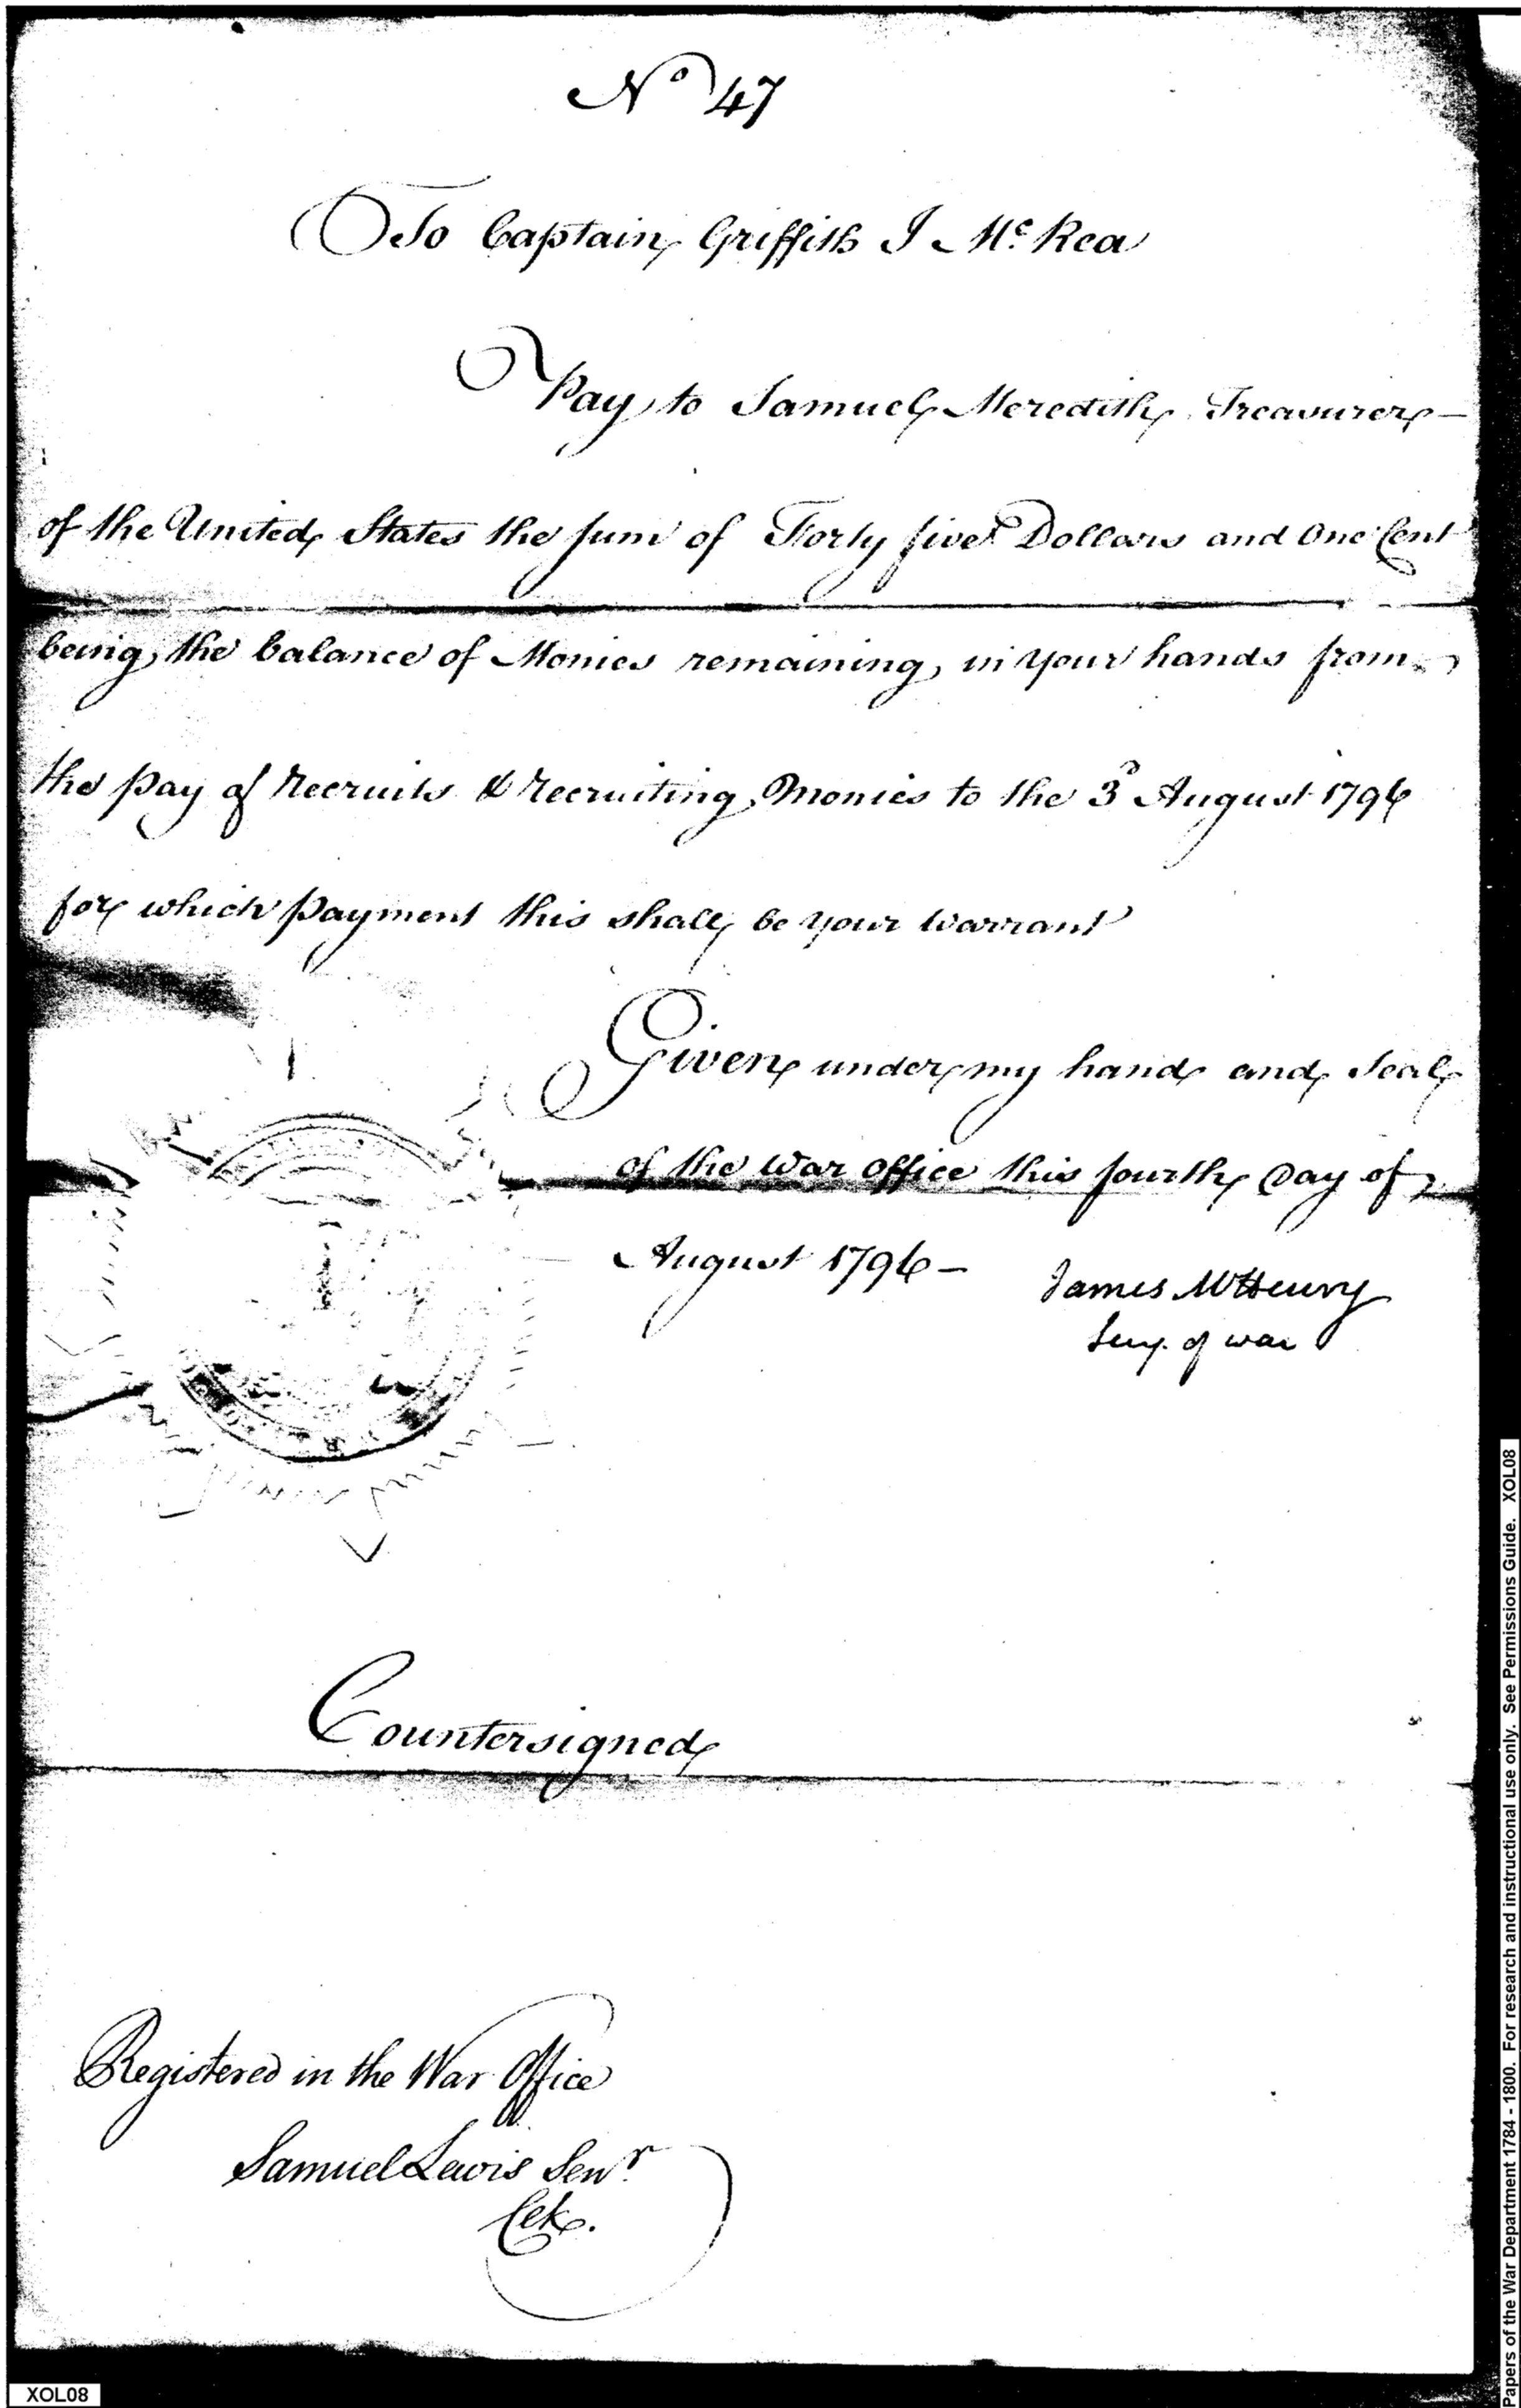 No 47
To Captain Griffith J McRea
Pay to Samuel Meredith Treasurer
of the United States the sum of Forty five Dollars and One Cent
being the balance of Monies remaining in your hands from
the pay of Recruits & recruiting Monies to the 3d August 1796
for which payment this shall be your warrant
Given under my hand and Seal
of the War office this fourth Day of
August 1796 -
James McHenry
Secy. of war
Countersigned
Registered in the War Office
Samuel Lewis Senr.
Clk.
XOL08
Papers of the War Department 1784 - 1800. For research and instructional use only. See Permissions Guide. XOL08